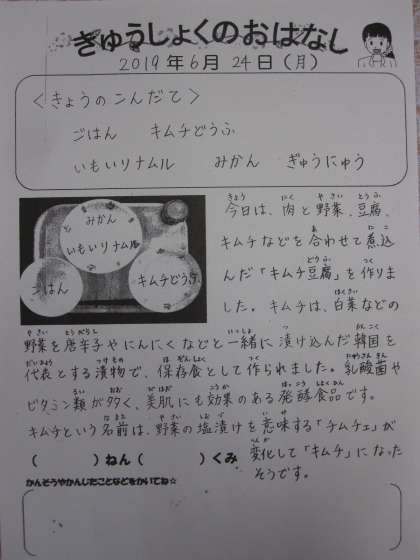 きゅうしょくのおはなし
2019年6月24日(月)
<きょうのこんだて>
ごはん キムチどうふ
いもいりナムル みかん ぎゅうにゅう
みかん
いもいりナムル
ごはん
キムチどうふ
今日は、肉と野菜、豆腐、
キムチなどを合わせて煮込
んだ「キムチ豆腐」を作りま
した。キムチは、白菜などの
野菜を唐辛子やにんにくなどと一緒に漬け込んだ韓国を
代表とする漬物で、保存食として作られました。乳酸菌や
ビタミン類が多く、美肌にも効果のある発酵食品です。
キムチという名前は、野菜の塩漬けを意味する「チムチェ」が
変化して「キムチ」になった
そうです。
( )ねん( )くみ
かんそうやかんじたことなどをかいてね☆